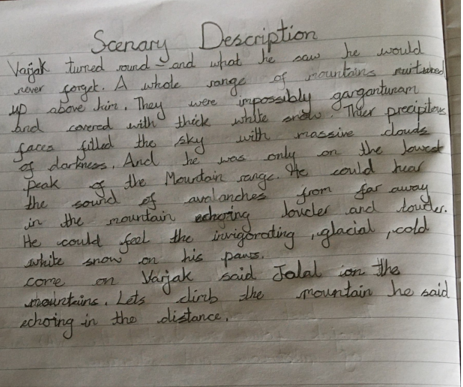 Scenary Description
Varjak turned round – and what he saw he would
never forget. A whole range of mountains
up above him. They were impossibly gargantuan
and covered with thick white snow. Their precipitous
faces filled the sky with massive clouds
of darkness. And he was only on the lowest
peak of the Mountain range. He could hear
the sound of avalanches from far away
in the mountain echoing louder and louder.
He could feel the invigorating, glacial, cold
white snow on his paws.
come on Varjak said Jalal on the
mountains. Lets climb the mountain he said
echoing in the distance.